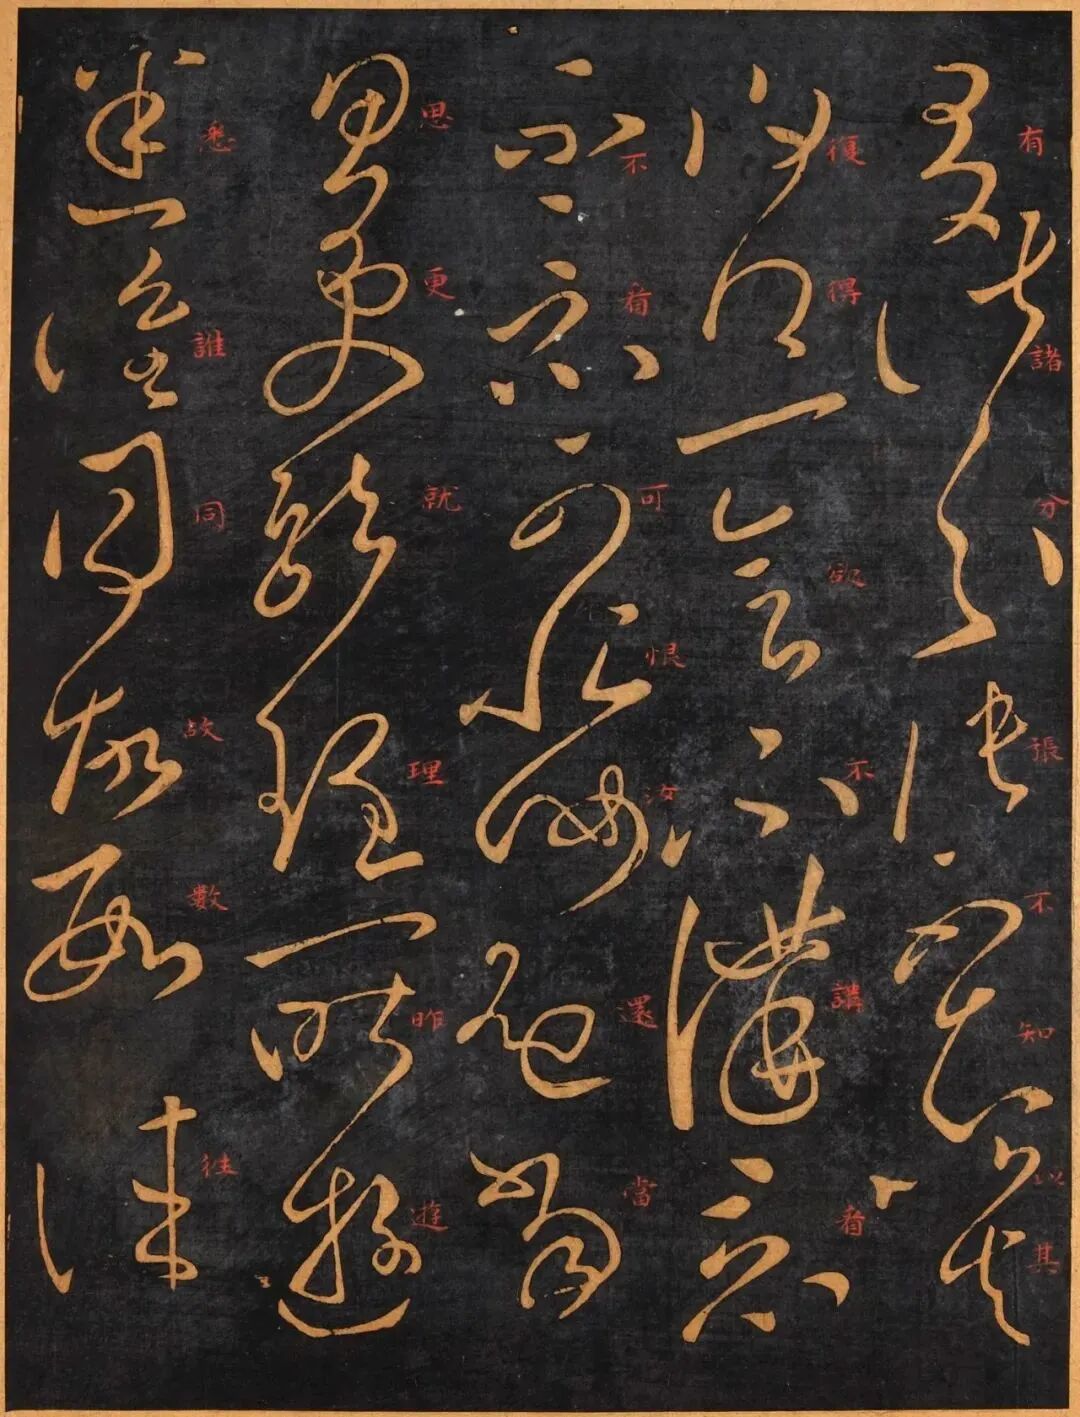 有諸分張不知以去
復得一會不講竟
不竟可恨汝還當
思更就理一昨遊
悉誰同故數往